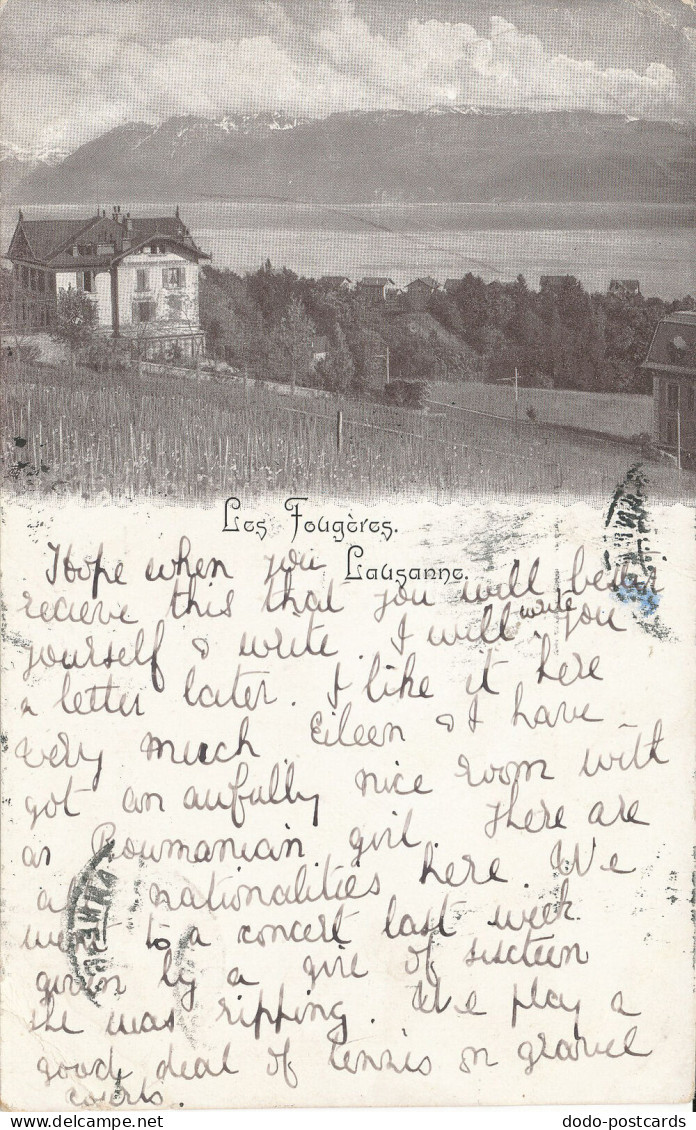 Les Fougères.
Lausanne.
Hope when you
recieve this that you will be
yourself & write. I will write you
a letter later. I like it here
very much Eileen & I have
got an awfully nice room with
a Roumanian girl. There are
all nationalities here. We
went to a concert last week
given by a girl of sixteen
she was ripping. We play a
good deal of tennis on gravel
courts.
dodo-postcards